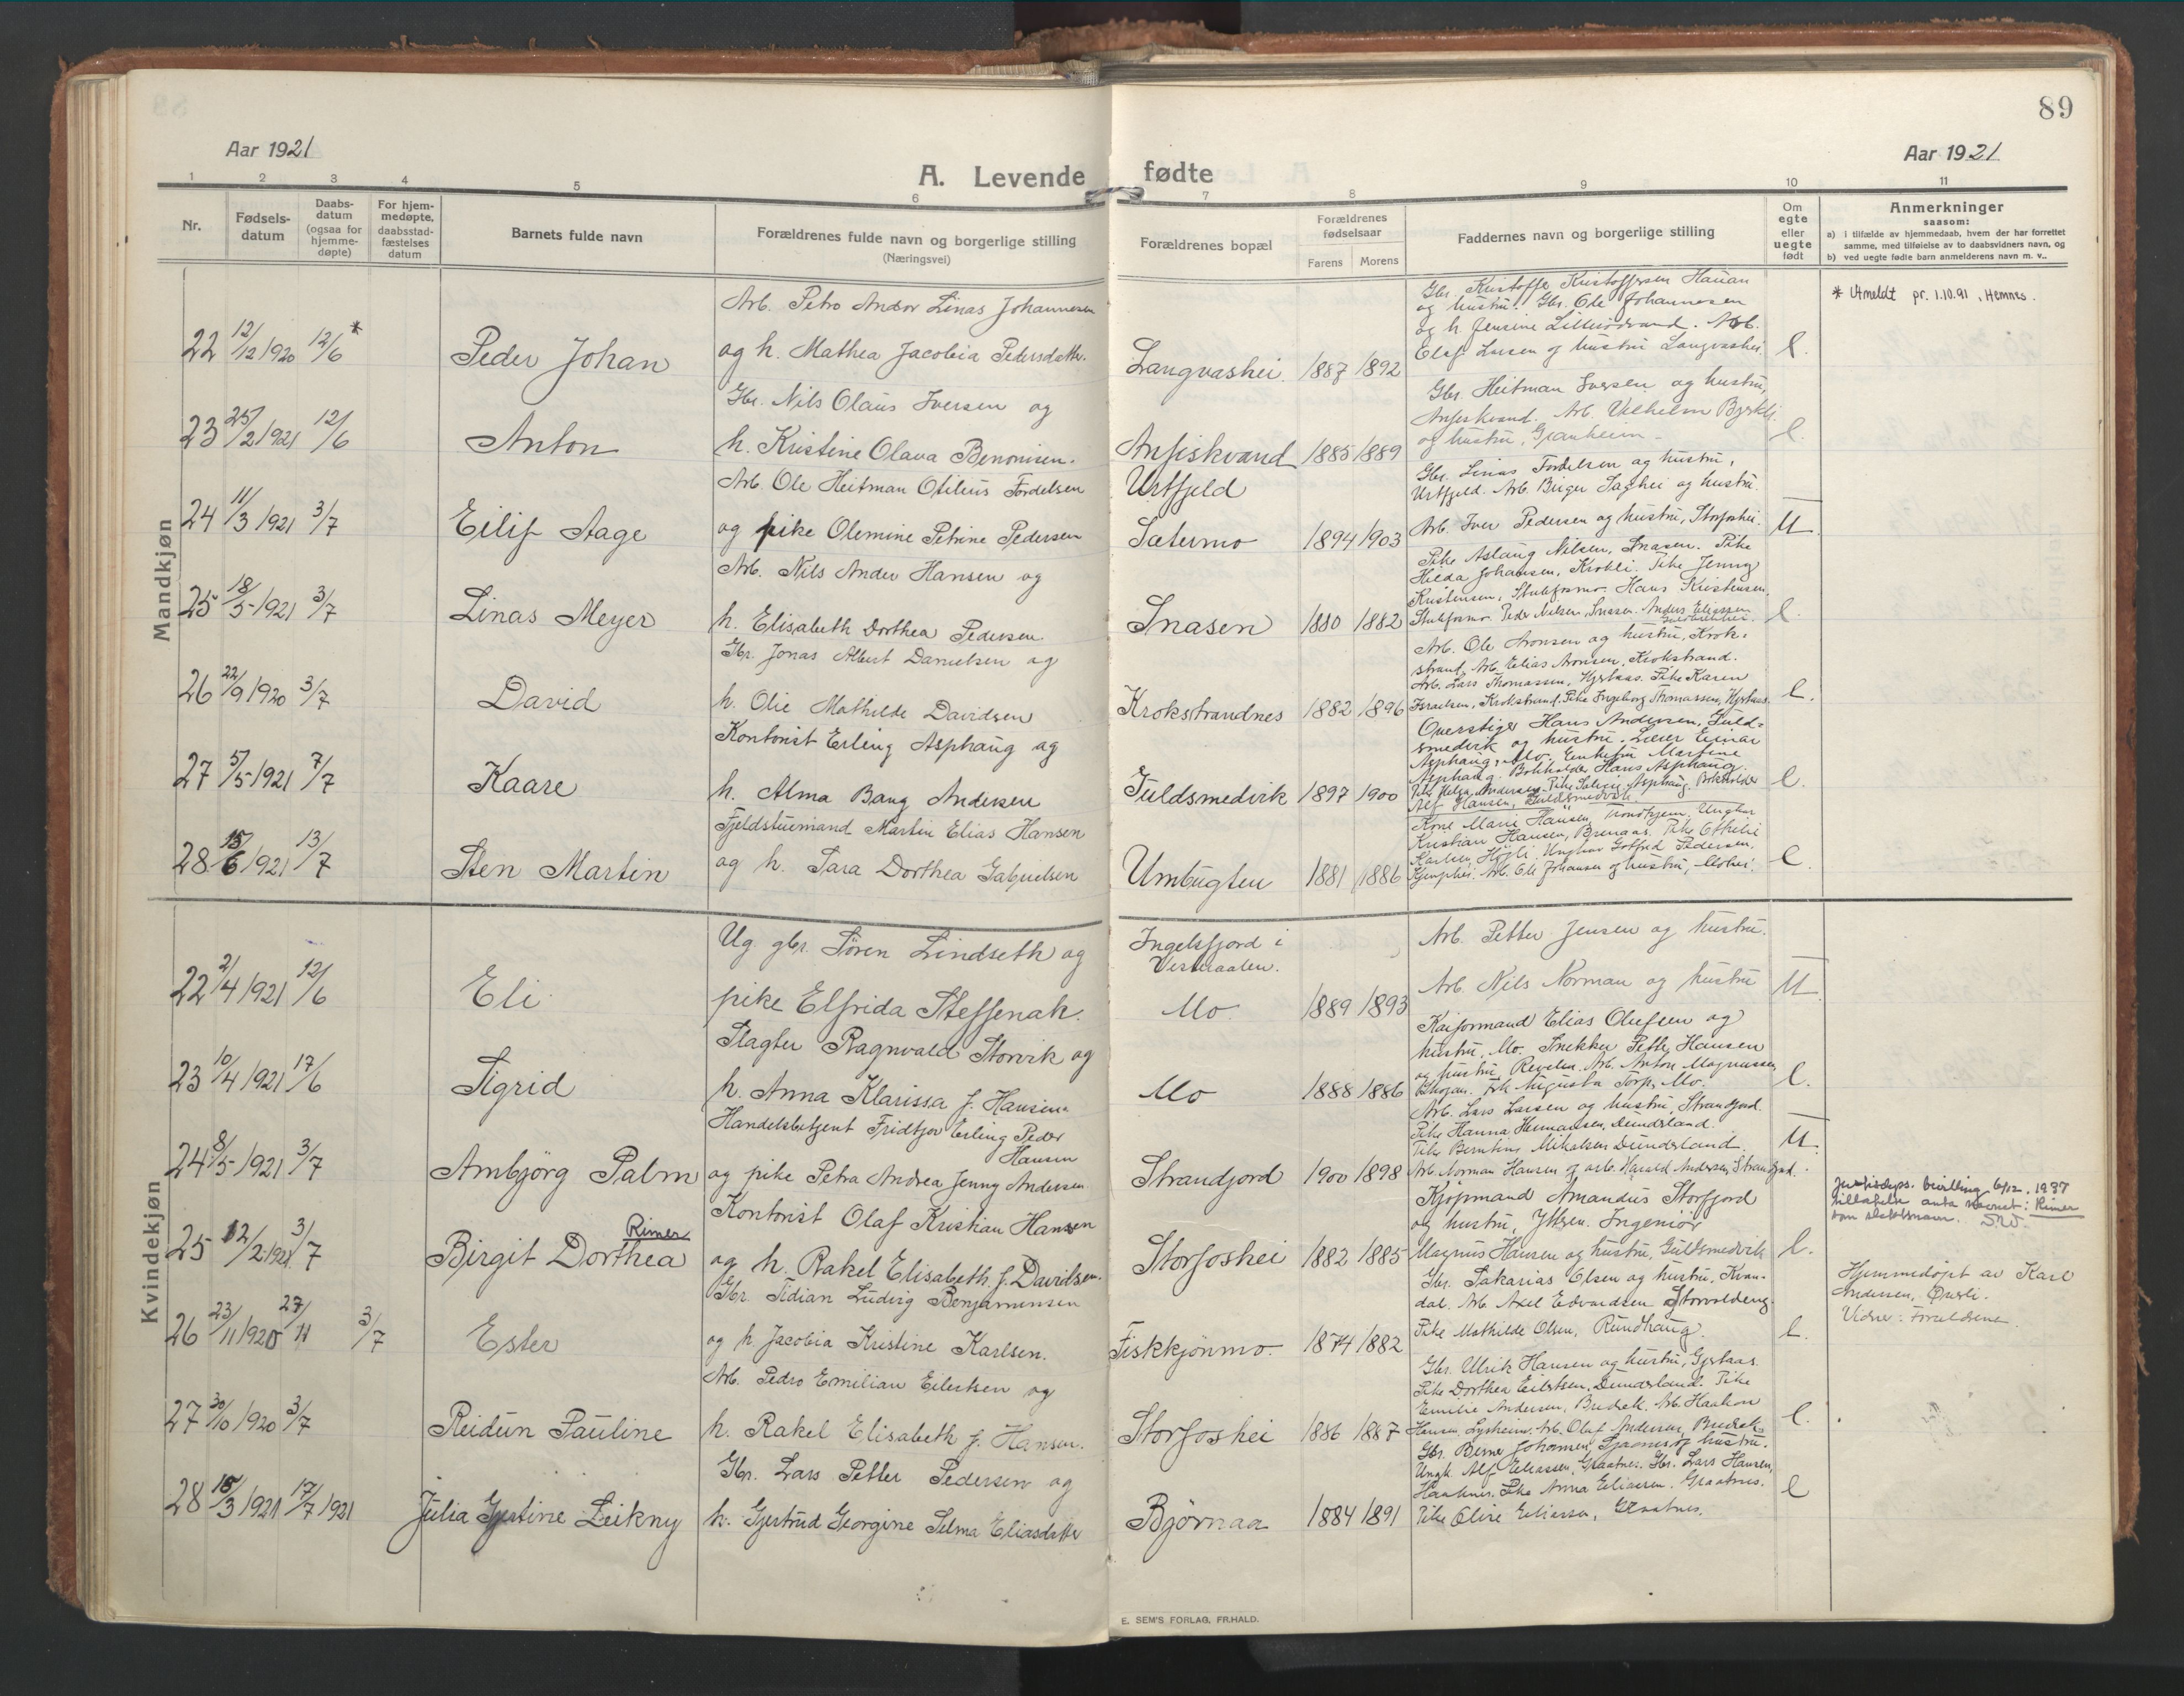 89
Aar 1921
A. Levende fødte
Aar 1921
1 2 3 4 5 6 7 8 9 10 11
Nr.
Fødsels-
datum
Daabs-
datum
(ogsaa for
hjemme-
døpte)
For hjem-
medøpte,
daabsstad-
fæstelses
datum
Barnets fulde navn
Forældrenes fulde navn og borgerlige stilling
(Næringsvei)
Forældrenes bopæl
Forældrenes
fødselsaar
Farens Morens
Faddernes navn og borgerlige stilling
Om
egte
eller
uegte
født
Anmerkninger
saasom:
a) i tilfælde av hjemmedaab, hvem der har forrettet
samme, med tilføielse av to daabsvidners navn, og
b) ved uegte fødte barn anmelderens navn m. v..
Mandkjøn
22 12/12 1920 12/6 *
Peder Johan
Arb. Petro Andor Linas Johannesen
og h. Mathea Jacobia Pedersdatter.
Langvashei. 1887 1892
Gbr. Kristoffer Kristoffersen Hauan
og hustru. Gbr. Ole Johannesen
og h. Jensine . Arb.
Olaf Larsen og hustru Langvashei.
e.
* Utmeldt pr. 1.10.91, Hemnes.
23 25/2 1921 12/6
Anton
Gbr. Nils Olaus Iversen og
h. Kristine Olava Benonisen.
Anfiskvand 1885 1889
Gbr. Heitman Iversen og hustru,
Anfiskvand. Arb. Vilhelm
og hustru, Granheim
e.
24 11/3 1921 3/7
Eilif Aage
Arb. Ole Heitman Otilius Fordelsen
og pike Olemine Petrine Pedersen
Urtfjeld
Sætermo 1894 1903
Gbr. Linas Fordelsen og hustru,
Urtfjeld. Arb. Birger Saghei og hustru.
Arb. Iver Pedersen og hustru, Storfoshei.
U
25 18/5 1921 3/7
Linas Meyer
Arb. Nils Ander Hansen og
h. Elisabeth Dorthea Pedersen
Snasen 1880 1882
Pike Aslaug Nilsen, Snasen. Pike
Hilda Johansen, Krokli. Pike Jenny
Kristensen, Stubformo. Hans Kristensen,
Stubformo. Peder Nilsen, Snasen. Anders Eliassen
e.
26 22/9 1920 3/7
David
Gbr. Jonas Albert Danielsen og
h. Olie Mathilde Davidsen
Krokstrandnes 1882 1896
Arb. Ole Aronsen og hustru, Krok-
strand. Arb. Elias Aronsen, Krokstrand.
Arb. Lars Thomassen, Hjertaas. Pike Karen
Israelsen, Krokstrand. Pike Ingeborg Thomassen, Hjertaas
e.
27 5/5 1921 7/7
Kaare
Kontorist Erling Asphaug og
h. Alma Bang Andersen
Guldsmedvik 1897 1900
Overstiger Hans Andersen, Guld-
smedvik og hustru. Lærer Einar
Asphaug, Mo. Enkefru Martine
Asphaug. Bokholder Hans Asphaug.
Pike Helga Andersen. Pike Asphaug. Bokholder
Alf Hansen, Guldsmedvik.
e.
28 15/6 1921 13/7
Sten Martin
Fjeldstuemand Martin Elias Hansen
og h. Sara Dorthea Gabrielsen
Umbugten 1881 1886
Kone Marie Hansen, Trondhjem. Ungkar
Kristian Hansen, Brenaas. Pike Othelie
Karlsen, Högli. Ungkar Gotfred Pedersen,
Kjemphei. Arb. Ole Johansen og hustru, Mohei.
e.
Kvindekjøn
22 2/4 1921 12/6
Eli
Ug. gbr. Søren Lindseth og
pike Elfrida Steffenak.
Ingelsfjord i
Vesteraalen.
Mo. 1889 1893
Arb. Petter Jensen og hustru.
Arb. Nils Norman og hustru
U
23 10/4 1921 17/6
Sigrid
Slagter Ragnvald Storvik og
h. Anna Klarissa f. Hansen.
Mo 1888 1886
Kaiformand Elias Olufsen og
hustru, Mo. Snekker Petter Hansen
og hustru, Revelen. Arb. Anton Magnussen,
. Frk Augusta Torp, Mo.
e.
24 8/5 1921 3/7
Ambjörg Palm
Handelsbetjent Fridtjov Erling Peder
Hansen
og pike Petra Andrea Jenny Andersen
Strandjord 1900 1898
Arb. Lars Larsen og hustru, Strandjord.
Pike Hanna Hermansen, Dunderland.
Pike Berntine Mikalsen, Dunderland.
Arb. Norman Hansen og arb. Harald Andersen, Strandjord.
U.
25 12/2 1921 3/7
Rimer
Birgit Dorthea
Kontorist Olaf Kristian Hansen
og h. Rakel Elisabeth f. Davidsen.
Storfoshei 1882 1885
Kjöpmand Amandus Storfjord
og hustru, Ytteren. Ingeniör
Magnus Hansen og hustru, Guldsmedvik
e.
Justisdeps. bevilling 6/12. 1937
tillatelse anta navnet: Rimer
som slektsnavn.
26 23/11 1920 27/11 3/7
Ester
Gbr. Tidian Ludvig Benjaminsen
og h. Jacobia Kristine Karlsen.
Fiskkjønmo. 1874 1882
Gbr. Sakarias Olsen og hustru, Kvan-
dal. Arb. Axel Edvardsen Storvoldeng.
Pike Mathilde Olsen, Rundhaug.
e.
Hjemmedøpt av Karl
Andersen, Øverli.
Vidner: Forældrene.
27 30/10 1920 3/7
Reidun Pauline
Arb. Pedro Emilian Eilertsen og
h. Rakel Elisabeth f. Hansen.
Storfoshei 1886 1887
Gbr. Ulrik Hansen og hustru,
Pike Dorthea Eilertsen, Dunderland. Pike
Emilie Andersen, . Arb. Haakon
Hansen, Lysheim. Arb. Olaf Andersen,
e.
28 15/3 1921 17/7 1921
Julia Gjertine Leikny
Gbr. Lars Petter Pedersen og
h. Gjertrud Georgine Selma Eliasdatter
Bjørnaa 1884 1891
Gbr. Johansen, og hustru.
Ungk. Alf Eliassen, Graatnes. Gbr. Lars Hansen,
. Pike Anna Eliassen, Graatnes.
Pike Oline Eliassen, Graatnes.
e
E. SEM'S FORLAG, FR.HALD.